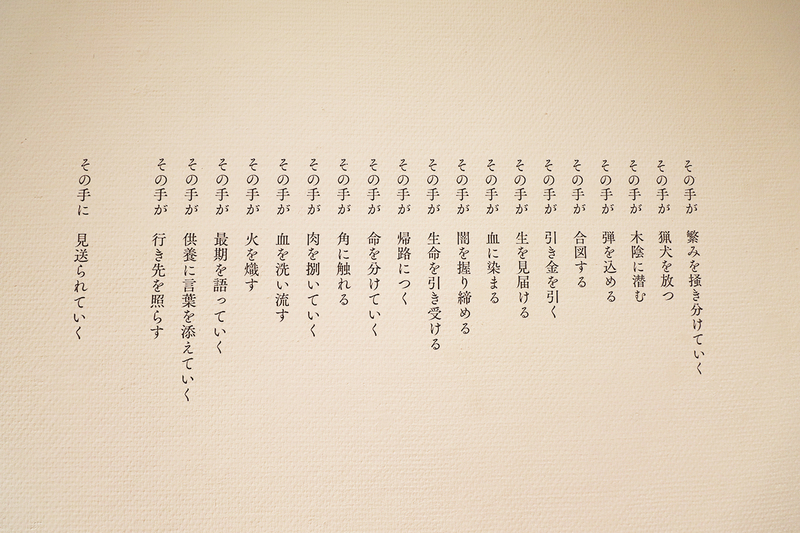 その手が　繁みを掻き分けていく
その手が　猟犬を放つ
その手が　木陰に潜む
その手が　弾を込める
その手が　合図する
その手が　引き金を引く
その手が　生を見届ける
その手が　血に染まる
その手が　闇を握り締める
その手が　生命を引き受ける
その手が　帰路につく
その手が　命を分けていく
その手が　角に触れる
その手が　肉を捌いていく
その手が　血を洗い流す
その手が　火を熾す
その手が　最期を語っていく
その手が　供養に言葉を添えていく
その手が　行き先を照らす
その手に　見送られていく